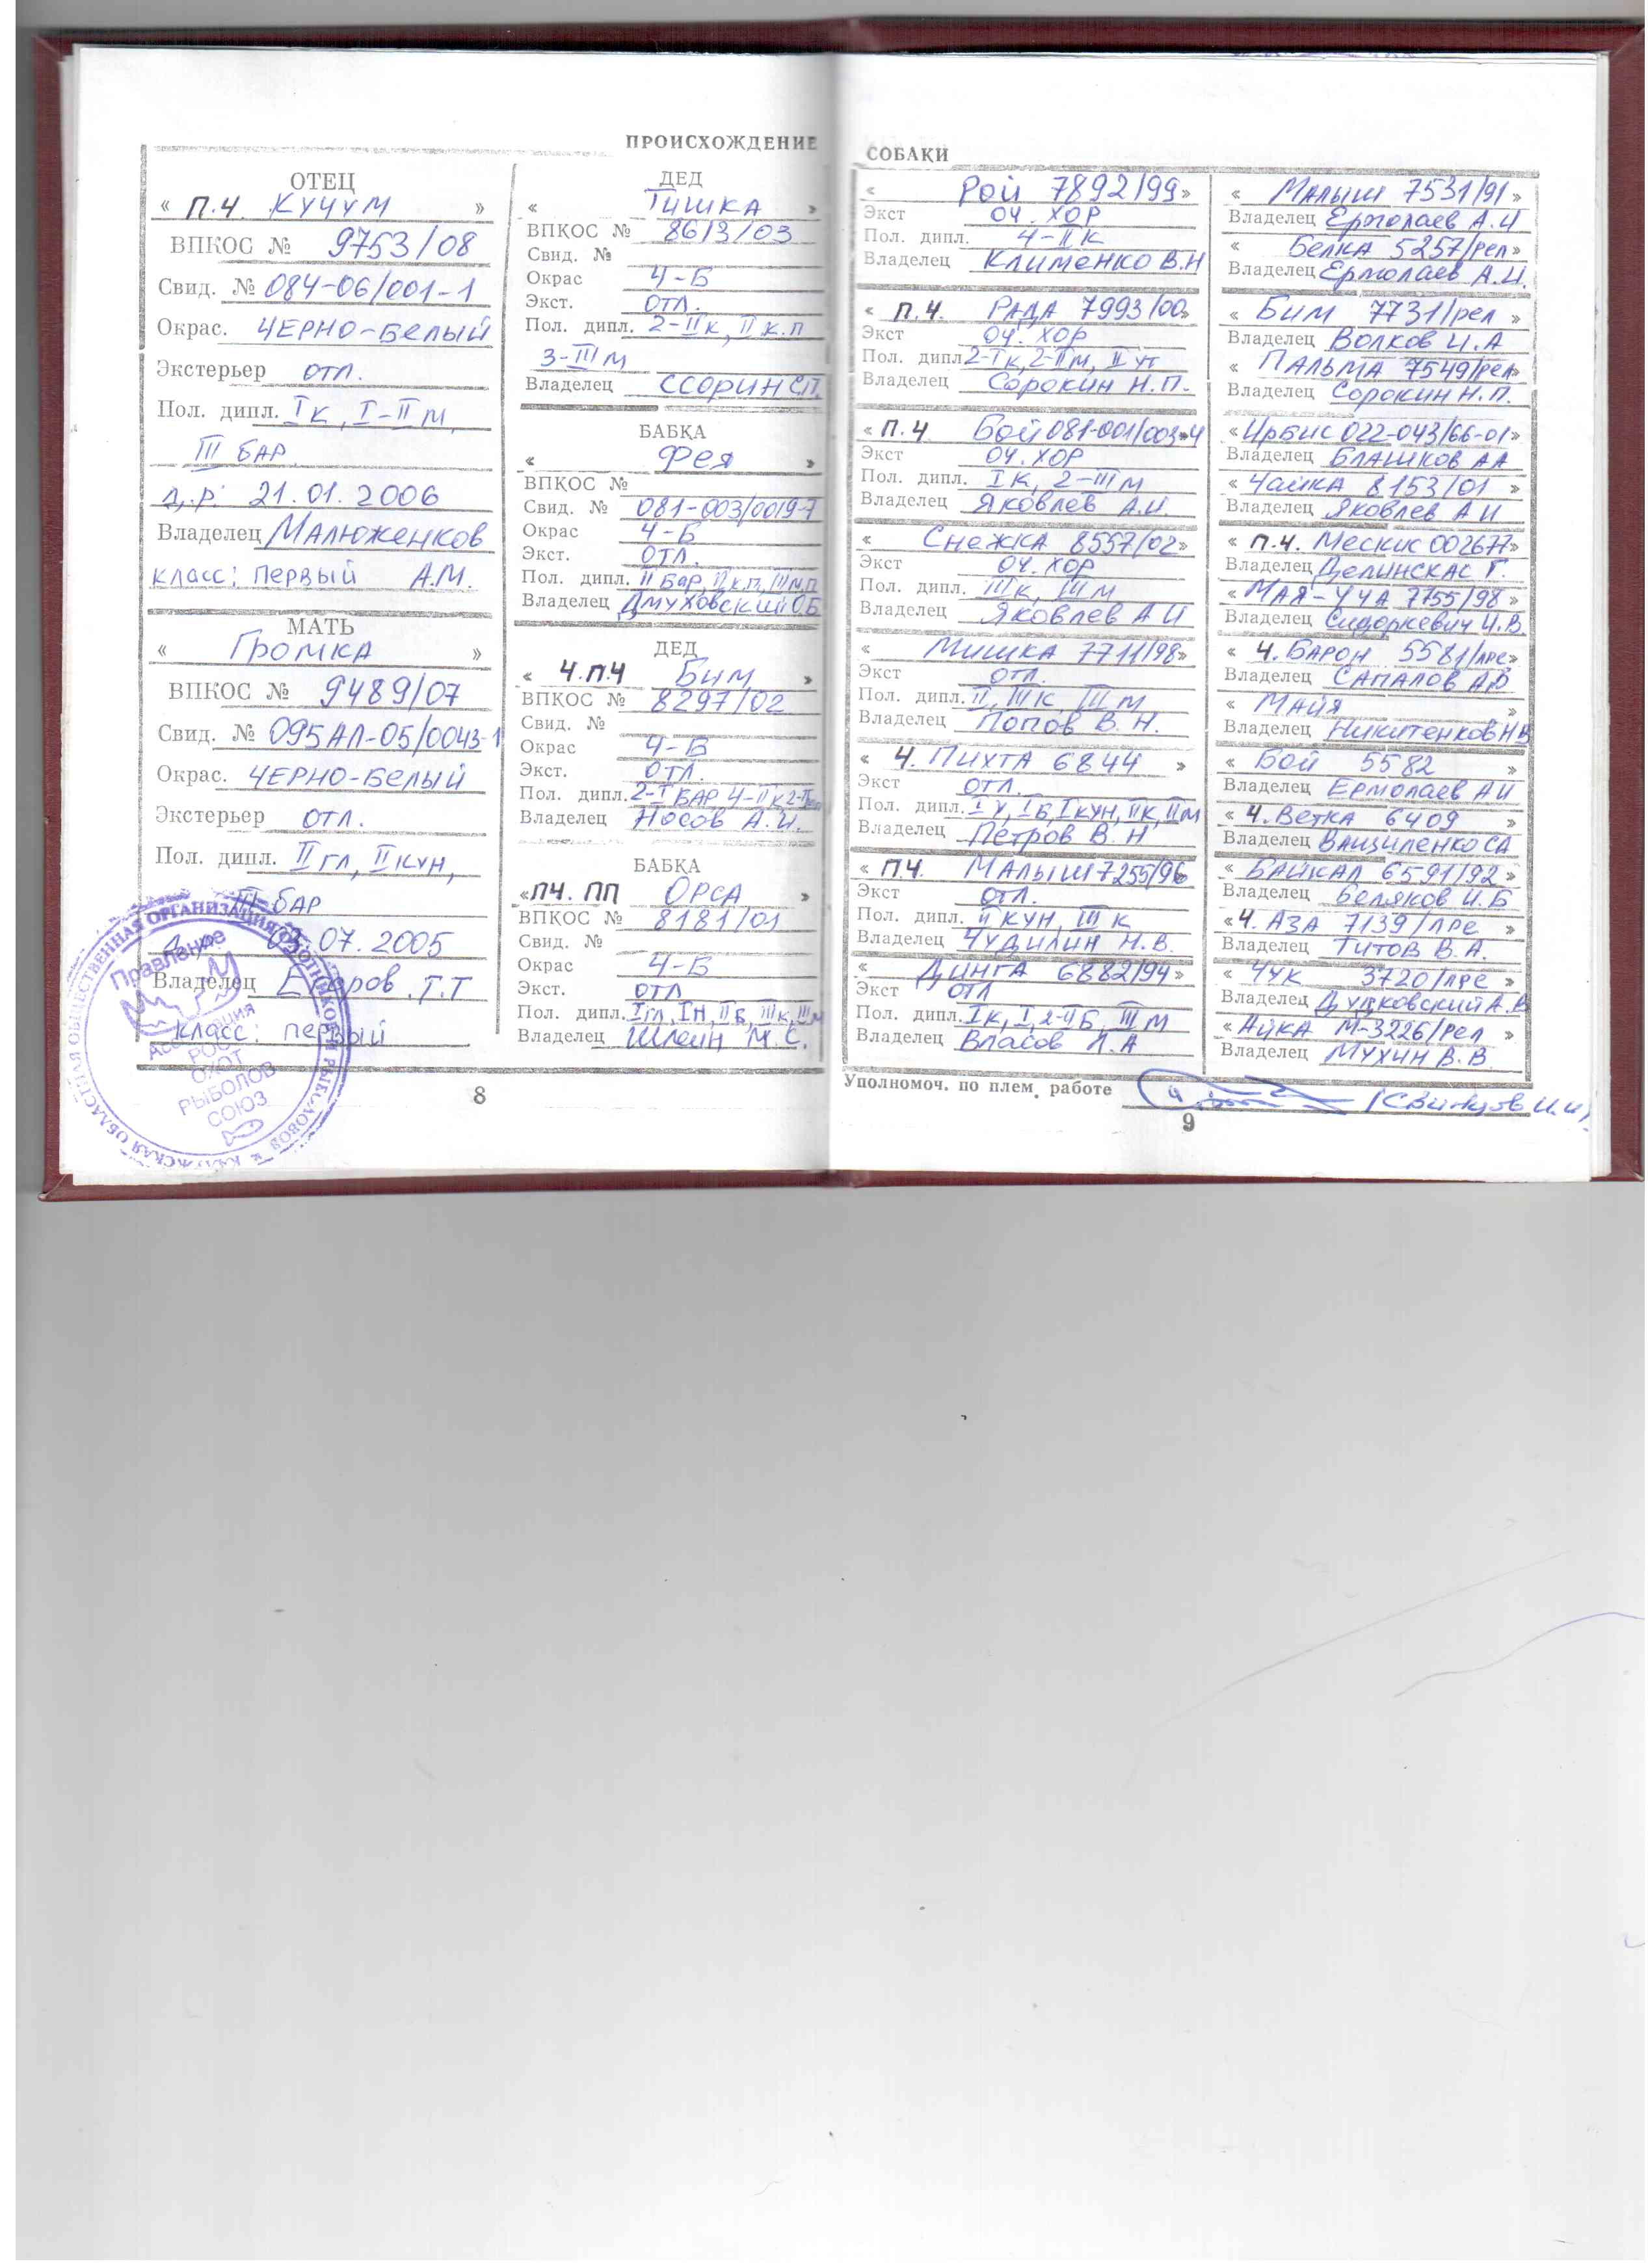 ПРОИСХОЖДЕНИЕ
ОТЕЦ
« П.Ч. КУЧУМ »
ВПКОС № 9753/08
Свид. № 084-06/001-1
Окрас. ЧЕРНО-БЕЛЫЙ
Экстерьер ОТЛ.
Пол. дипл. I К, I-II М,
III БАР
Д.Р. 21.01.2006
Владелец МАЛЮЖЕНКОВ
КЛАСС: ПЕРВЫЙ А.М.
МАТЬ
« ГРОМКА »
ВПКОС № 9489/07
Свид. № 095АЛ-05/0043-1
Окрас. ЧЕРНО-БЕЛЫЙ
Экстерьер ОТЛ.
Пол. дипл. II ГЛ, II КУН,
БАР
03.07.2005
Владелец Т.Т
КЛАСС: ПЕРВЫЙ
ДЕД
« ТИШКА »
ВПКОС № 8613/03
Свид. №
Окрас Ч-Б
Экст. ОТЛ.
Пол. дипл. 2-II К, II К.П
3-III М
Владелец ССОРИН С.П.
БАБКА
« ФЕЯ »
ВПКОС №
Свид. № 081-003/0019-7
Окрас Ч-Б
Экст. ОТЛ.
Пол. дипл. II БАР, II К.П, III М.П
Владелец ДМУХОВСКИЙ О.Б
ДЕД
« Ч.П.Ч БИМ »
ВПКОС № 8297/02
Свид. №
Окрас Ч-Б
Экст. ОТЛ.
Пол. дипл. 2-I БАР 4-II К
Владелец НОСОВ А.И.
БАБКА
« ПЧ. ПП ОРСА »
ВПКОС № 8181/01
Свид. №
Окрас Ч-Б
Экст. ОТЛ
Пол. дипл. I ГЛ, I Н, II Б, III К, III М
Владелец ШЛЕИН М.С.
Правление
РОС
ОХОТ
РЫБОЛОВ
СОЮЗ
8
СОБАКИ
« РОЙ 7892/99 »
Экст ОЧ. ХОР
Пол. дипл. 4-II К
Владелец КЛИМЕНКО В.Н
« П.Ч. РАДА 7993/00 »
Экст ОЧ. ХОР
Пол. дипл. 2-I К, 2-II М, II УТ
Владелец СОРОКИН Н.П.
« П.Ч БОЙ 081-001/003-4
Экст ОЧ. ХОР
Пол. дипл. I К, 2-III М
Владелец ЯКОВЛЕВ А.И.
« СНЕЖКА 8557/02 »
Экст ОЧ. ХОР
Пол. дипл. III К, III М
Владелец ЯКОВЛЕВ А И
« МИШКА 7711/98 »
Экст ОТЛ.
Пол. дипл. II, III К, III М
Владелец ПОПОВ В. Н.
« Ч. ПИХТА 6844 »
Экст ОТЛ.
Пол. дипл. I У, I Б, I КУН, II К, II М
Владелец ПЕТРОВ В. Н
« ПЧ. МАЛЫШ 7255/96 »
Экст ОТЛ.
Пол. дипл. II КУН, III К
Владелец ЧУДИЛИН Н.В.
« ДИНГА 6882/94 »
Экст ОТЛ
Пол. дипл. I К, I, 2-II Б, III М
Владелец ВЛАСОВ Л.А
« МАЛЫШ 7531/91 »
Владелец ЕРМОЛАЕВ А.И
« БЕЛКА 5257/РЕЛ »
Владелец ЕРМОЛАЕВ А.И.
« БИМ 7731/РЕЛ »
Владелец ВОЛКОВ И.А
« ПАЛЬМА 7549/РЕЛ »
Владелец СОРОКИН Н.П.
« ИРБИС 022-043/66-01 »
Владелец БЛАШКОВ АА
« ЧАЙКА 8153/01 »
Владелец ЯКОВЛЕВ А И
« П.Ч. МЕСКИС 002677 »
Владелец ДЕЛИНСКАС Г.
« МАЯ-УЧА 7755/98 »
Владелец СИДОРКЕВИЧ И.В.
« Ч. БАРОН 5581/ЛРС »
Владелец САПАЛОВ А.В
« МАЙЯ »
Владелец НИКИТЕНКОВ Н В
« БОЙ 5582 »
Владелец ЕРМОЛАЕВ А И
« Ч. ВЕТКА 6409 »
Владелец ВАЩИЛЕНКО СА
« БАЙКАЛ 6591/92 »
Владелец БЕЛЯКОВ И.Б
« Ч. АЗА 7139/ЛРС »
Владелец ТИТОВ В.А.
« ЧУК 3720/ЛРС »
Владелец ДУДКОВСКИЙ А.В
« АЙКА М-3226/РЕЛ »
Владелец МУХИН В.В.
Уполномоч. по плем. работе
9